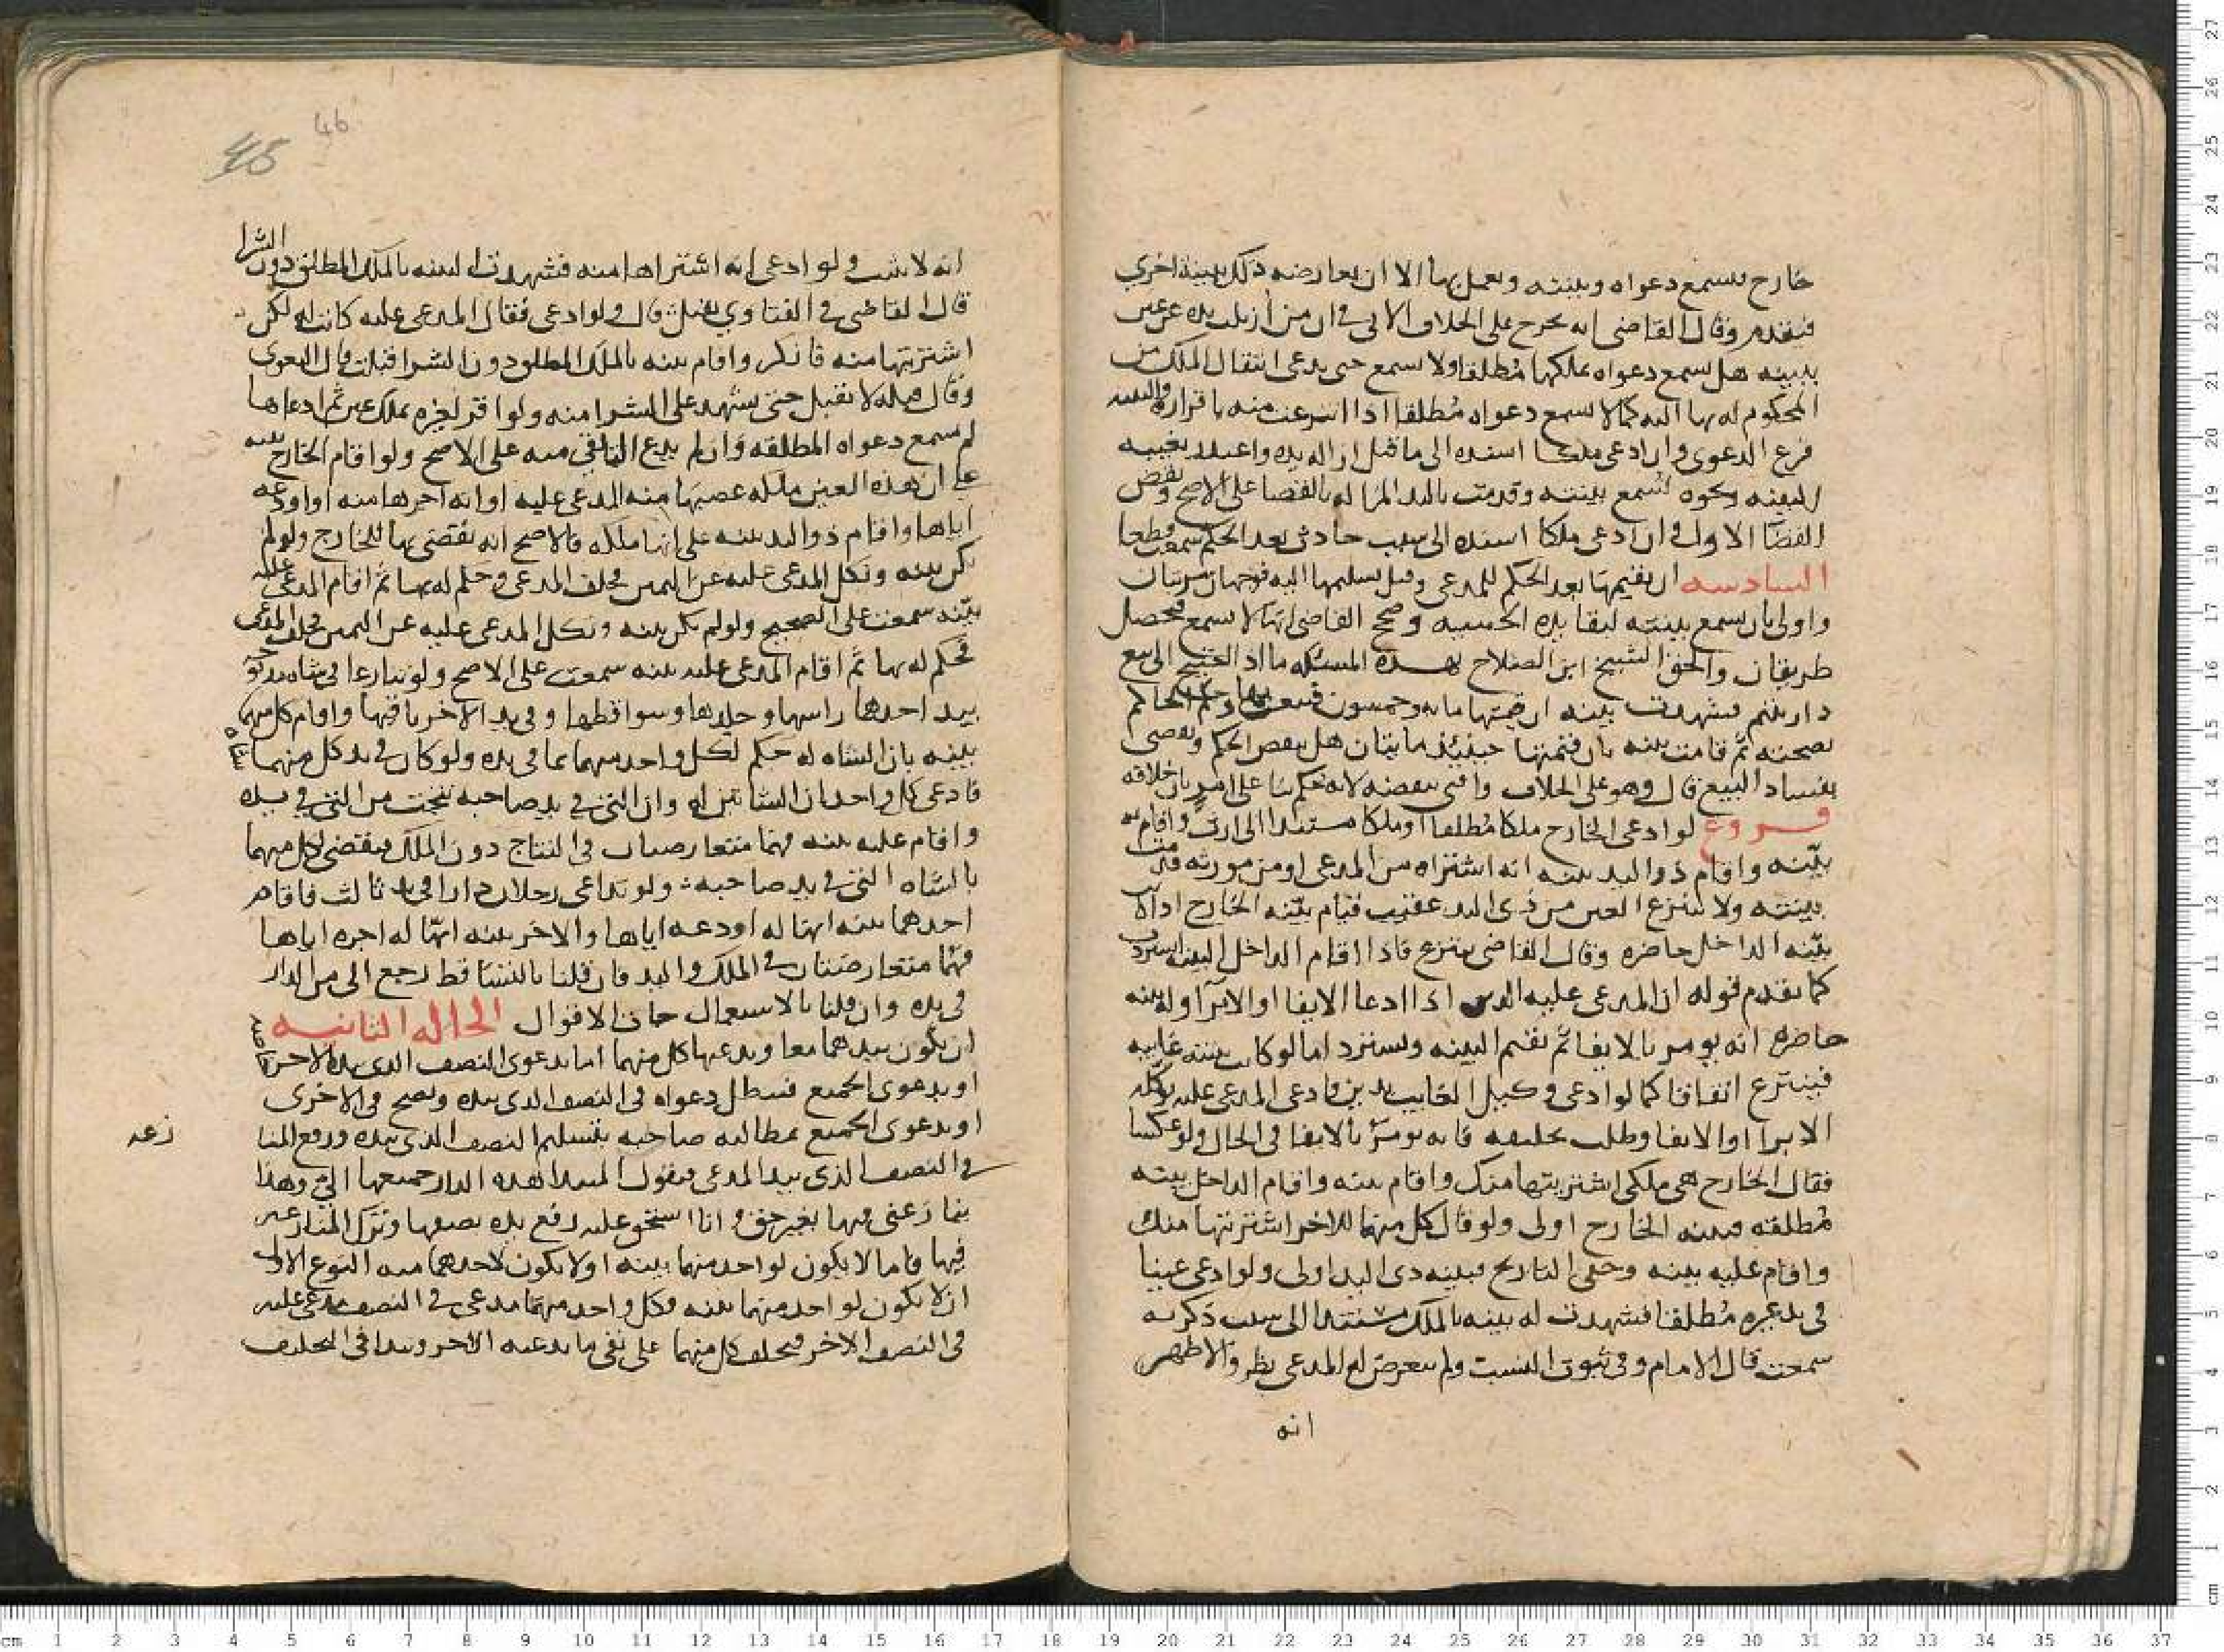 خارج يسمع دعواه وبينته ويعمل بها الا ان يعارضه ذلك ببينة اخرى
فيقدم وقال القاضي انه يخرج على الخلاف الاتي في ان من ازيلت يده عن عين
ببينه هل يسمع دعواه بملكها مطلقا او لا يسمع حتى يدعى انتقال الملك من
المحكوم له بها اليه كما لا يسمع دعواه مطلقا اذا انتزعت منه باقراره والبينه
فرع الدعوى وان ادعى ملكا اسنده الى ما قبل ازاله يده واعتذر بغيبه
البينه ونحوه تسمع بينته وقدمت باليد المزاله بالقضا على الاصح ونقض
القضا الاول وان ادعى ملكا اسنده الى سبب حادث بعد الحكم سمعت قطعا
السادسه ان يقيمها بعد الحكم للمدعي وقبل تسليمها اليه فوجهان مرتبان
واولى بان يسمع بينته لبقا يده الحسيه وصحح القاضي انها لا تسمع فحصل
طريقان والحق الشيخ ابن الصلاح بهذه المسئله ما اذا احتيج الى بيع
دار يتيم فشهدت بينه ان قيمتها مايه وخمسون فبيعت بها وحكم الحاكم
بصحته ثم قامت بينه بان قيمتها حينئذ مايتان هل ينقض الحكم ويقضى
بفساد البيع قال وهو على الخلاف وافتى بنقضه لانه حكم بنا على امر بان خلافه
فروع لو ادعى الخارج ملكا مطلقا او ملكا مستندا الى ارث واقام به
بينه واقام ذو اليد بينه انه اشتراه من المدعي او من مورثه قدمت
بينته ولا ينتزع العين من ذي اليد عقيب قيام بينه الخارج اذا كانت
بينه الداخل حاضره وقال القاضي ينتزع فاذا اقام الداخل البينه استرد
كما تقدم قوله ان المدعى عليه الدين اذا ادعا الايفا او الابرا وله بينه
حاضره انه يومر بالايفا ثم يقيم البينه ويسترد اما لو كانت بينته غايبه
فينتزع اتفاقا كما لو ادعى وكيل الغايب بدين فادعى المدعى عليه توكله
الابرا او الايفا وطلب تحليفه فانه يومر بالايفا في الحال ولو عكسا
فقال الخارج هي ملكي اشتريتها منك واقام بينه واقام الداخل بينه
مطلقه فبينه الخارج اولى ولو قال كل منهما للاخر اشتريتها منك
واقام عليه بينه وخفي التاريخ فبينه ذي اليد اولى ولو ادعى عينا
في يد غيره مطلقا فشهدت له بينه بالملك مستندا الى سبب ذكرته
سمعت قال الامام وفي ثبوت السبب ولم يتعرض له المدعي نظر والاظهر
انه
46
45
انه لا يثبت ولو ادعى انه اشتراها منه فشهدت البينه بالملك المطلق دون الشرا
قال القاضي في الفتاوي يقبل قال ولو ادعى فقال المدعى عليه كانت له لكن
اشتريتها منه فانكر واقام بينه بالملك المطلق دون الشرا قبلت قال البغوى
وقال قبله لا تقبل حتى تشهد على الشرا منه ولو اقر لغيره بملك عين ثم ادعاها
لم تسمع دعواه المطلقه وان لم يدع التلقي منه على الاصح ولو اقام الخارج بينه
على ان هذه العين ملكه غصبها منه المدعى عليه او انه اجرها منه او اودعه
اياها واقام ذو اليد بينه على انها ملكه فالاصح انه يقضى بها للخارج ولو لم
يكن بينه ونكل المدعى عليه عن اليمين فحلف المدعي وحكم له بها ثم اقام المدعى عليه
بينه سمعت على الصحيح ولو لم يكن بينه ونكل المدعى عليه عن اليمين فحلف المدعي
فحكم له بها ثم اقام المدعى عليه بينه سمعت على الاصح ولو تنازعا في شاه
بيد احدهما راسها وجلدها وسواقطها وفي يد الاخر باقيها واقام كل منهما
بينه بان الشاه له حكم لكل واحد منهما بما في يده ولو كان في يد كل منهما شاه
فادعى كل واحد ان الشاتين له وان التي في يد صاحبه نتجت من التي في يده
واقام عليه بينه فهما متعارضتان في النتاج دون الملك فيقضى لكل منهما
بالشاه التي في يد صاحبه ولو تداعى رجلان دارا في يد ثالث فاقام
احدهما بينه انها له اودعه اياها والاخر بينه انها له اجره اياها
فهما متعارضتان في الملك واليد فان قلنا بالتساقط رجع الى من الدار
في يده وان قلنا بالاستعمال جات الاقوال الحاله الثانيه
ان تكون بيدهما معا ويدعيها كل منهما اما بدعوى النصف الذي بيد الاخر خاصه
او بدعوى الجميع فتبطل دعواه في النصف الذى بيده وتصح في الاخرى
او بدعوى الجميع بمطالبه صاحبه بتسليم النصف الذى بيده ورفع المنا
زعه
في النصف الذى بيد المدعي فيقول المبتدا هذه الدار جميعها الي وهذا
ينازعني فيها بغير حق وانا استحق عليه رفع يده نصفها وترك المنازعه
فيها فاما لا يكون لواحد منهما بينه او لا يكون لاحدهما بينه النوع الاول
ان لا يكون لواحد منهما بينه فكل واحد منهما مدعي في النصف مدعى عليه
في النصف الاخر فيحلف كل منهما على نفي ما يدعيه الاخر ويبدا في التحليف